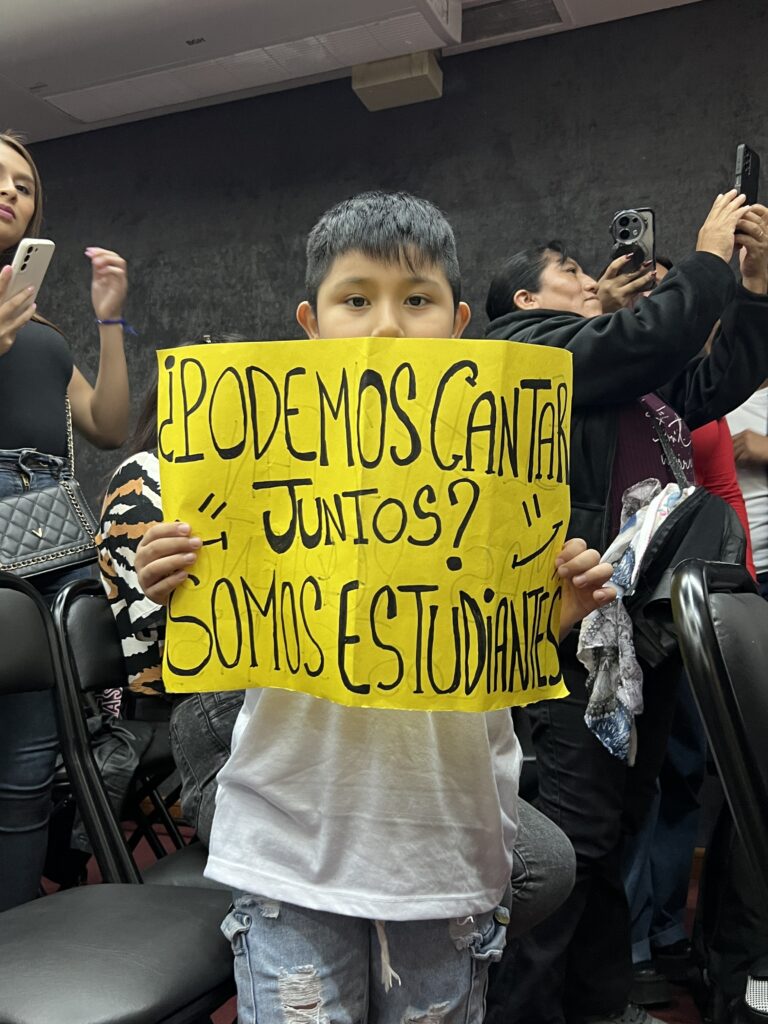 ¿PODEMOS CANTAR
JUNTOS?
SOMOS ESTUDIANTES